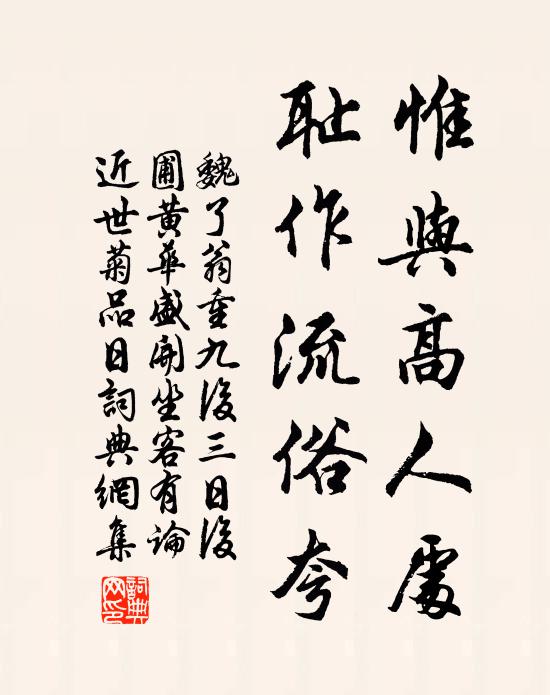 惟與高人處
恥作流俗夸
魏了翁重九後三日後
圃黃華盛開坐客有論
近世菊品日詞典網集
詞典
网印